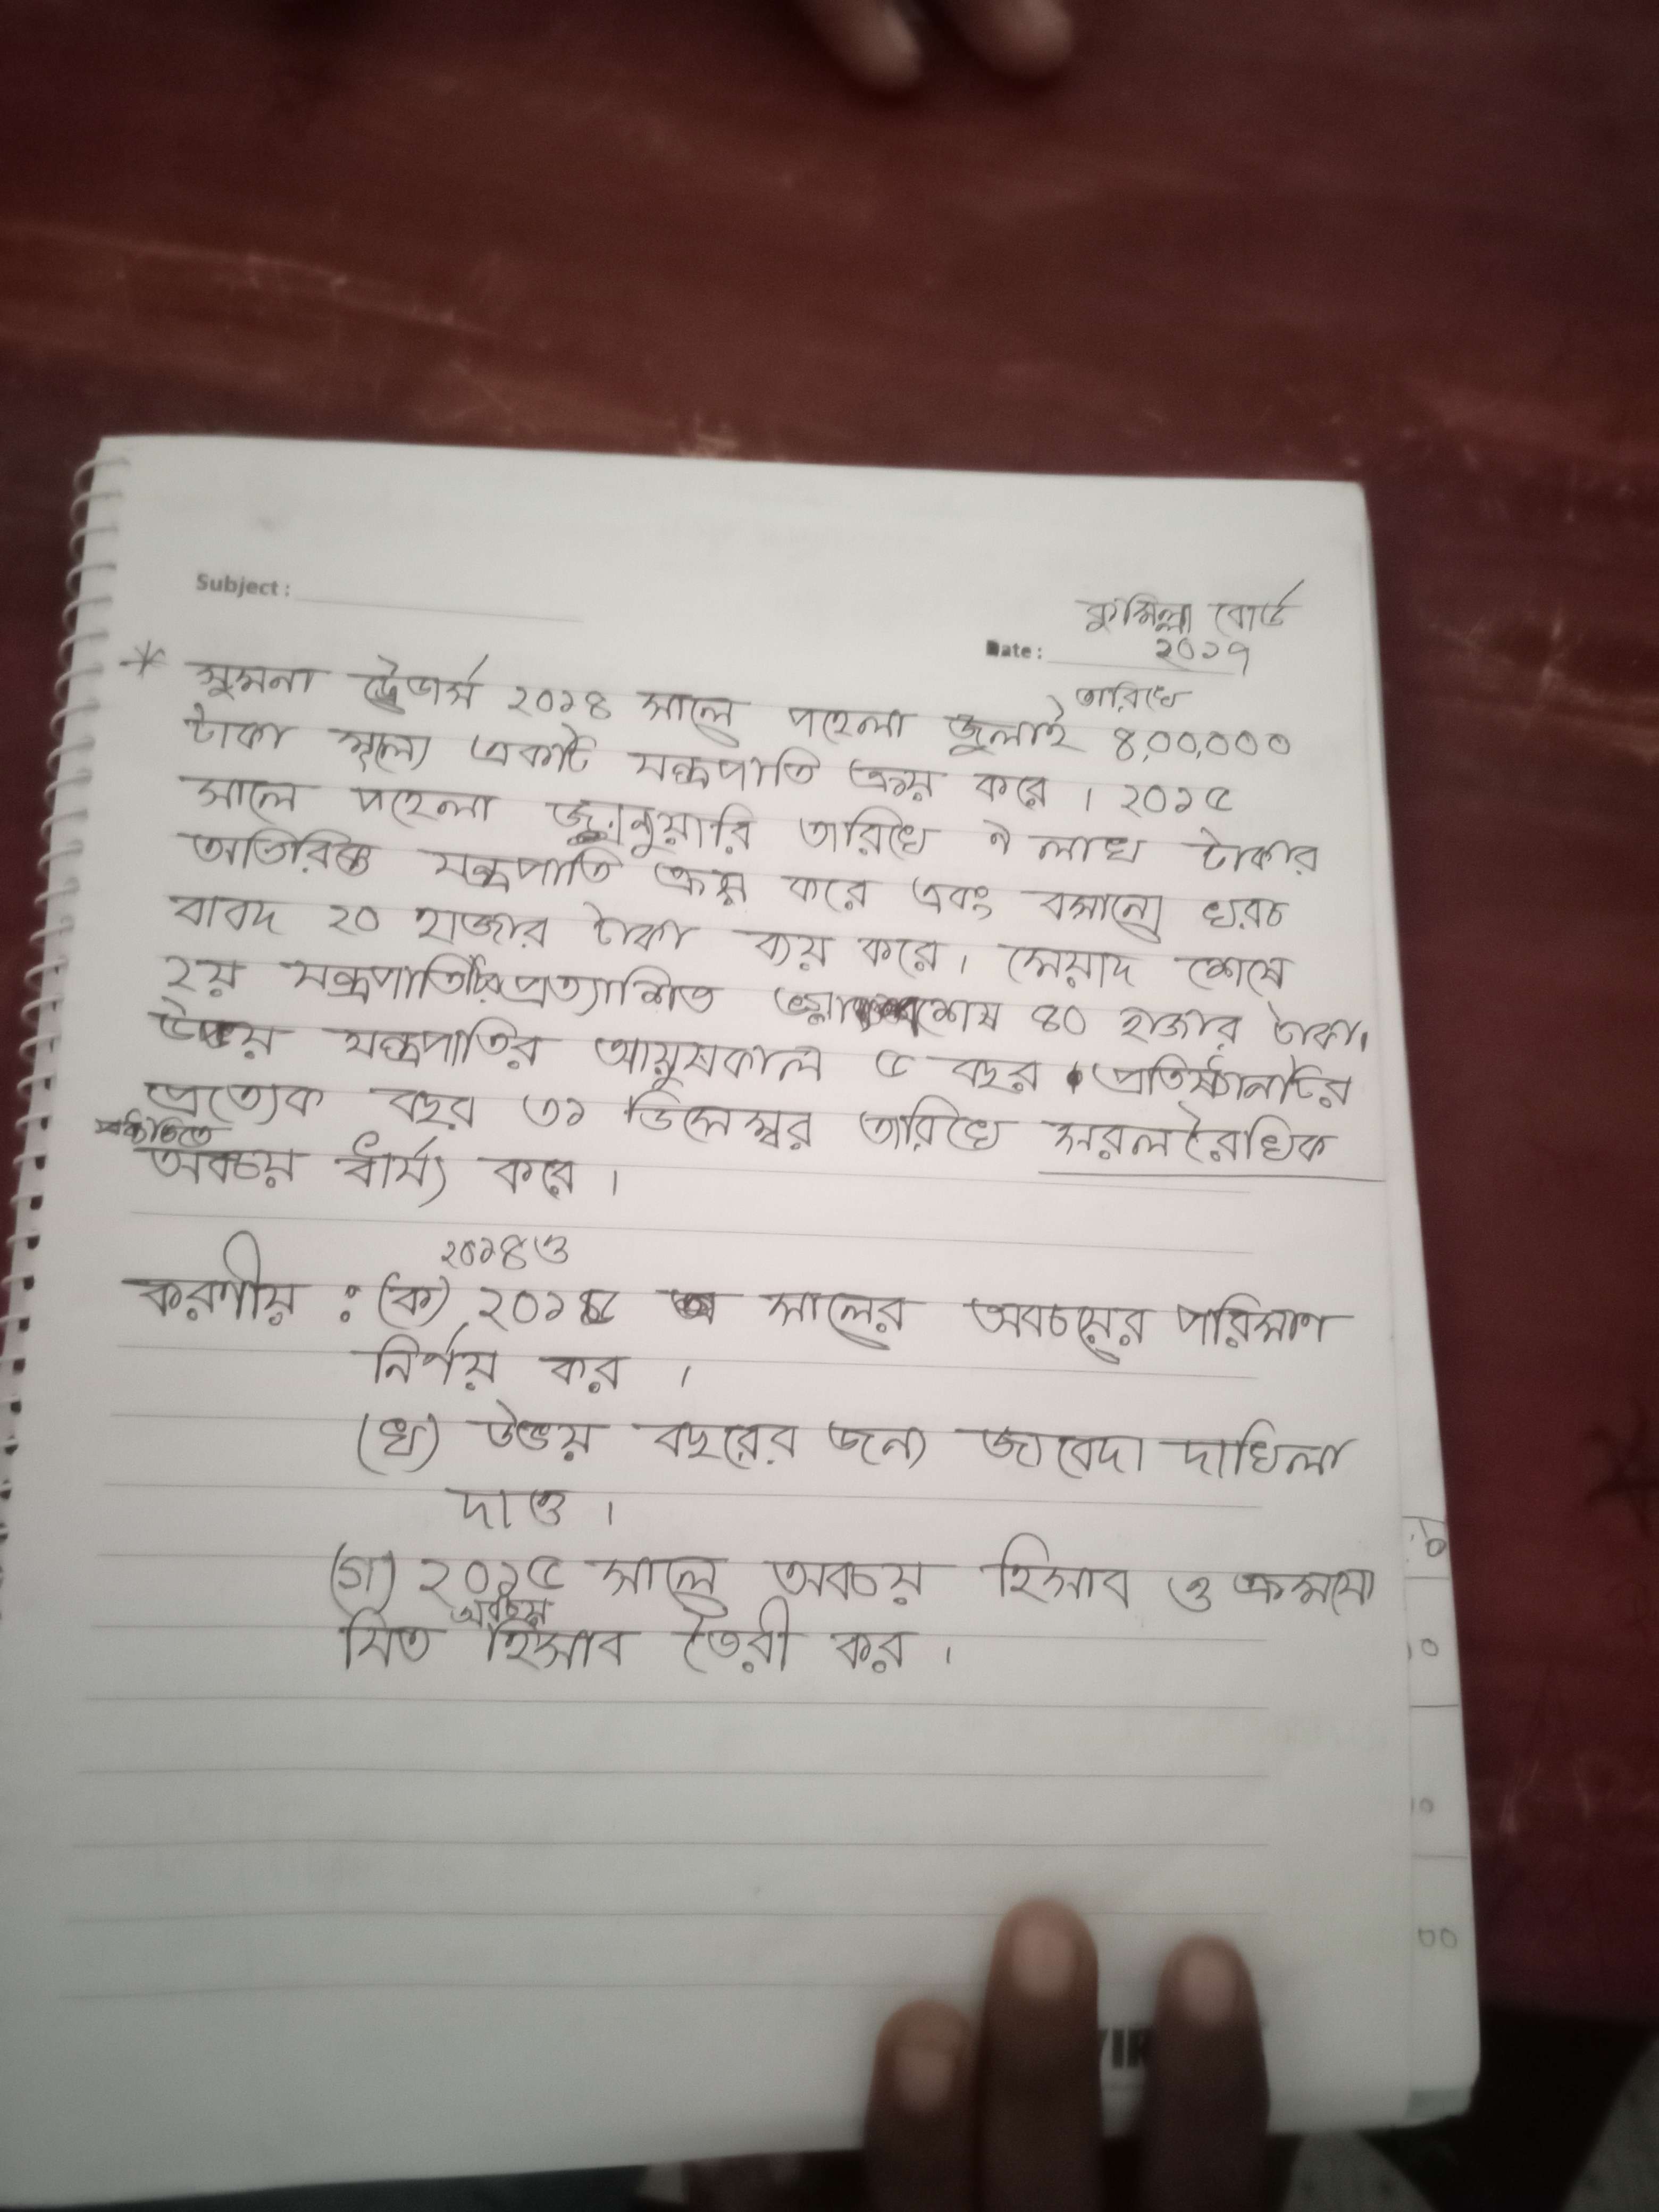 Subject :
কুমিল্লা বোর্ড
Date : ২০১৭
* সুমনা ট্রেডার্স ২০১৪ সালে পহেলা জুলাই তারিখে ৪,০০,০০০
টাকা মূল্যে একটি যন্ত্রপাতি ক্রয় করে । ২০১৫
সালে পহেলা জানুয়ারি তারিখে ২ লাখ টাকার
অতিরিক্ত যন্ত্রপাতি ক্রয় করে এবং বসানো খরচ
বাবদ ২০ হাজার টাকা ব্যয় করে । মেয়াদ শেষে
২য় যন্ত্রপাতির প্রত্যাশিত ভগ্নাবশেষ ৪০ হাজার টাকা।
উভয় যন্ত্রপাতির আয়ুষকাল ৫ বছর । প্রতিষ্ঠানটির
প্রত্যেক বছর ৩১ ডিসেম্বর তারিখে সরলরৈখিক
পদ্ধতিতে
অবচয় ধার্য্য করে ।
করণীয় : (ক) ২০১৪ও ২০১৫ সালের অবচয়ের পরিমাণ
নির্ণয় কর ।
(খ) উভয় বছরের জন্য জাবেদা দাখিলা
দাও ।
(গ) ২০১৫ সালে অবচয় হিসাব ও ক্রমযো
যিত অবচয় হিসাব তৈরী কর ।